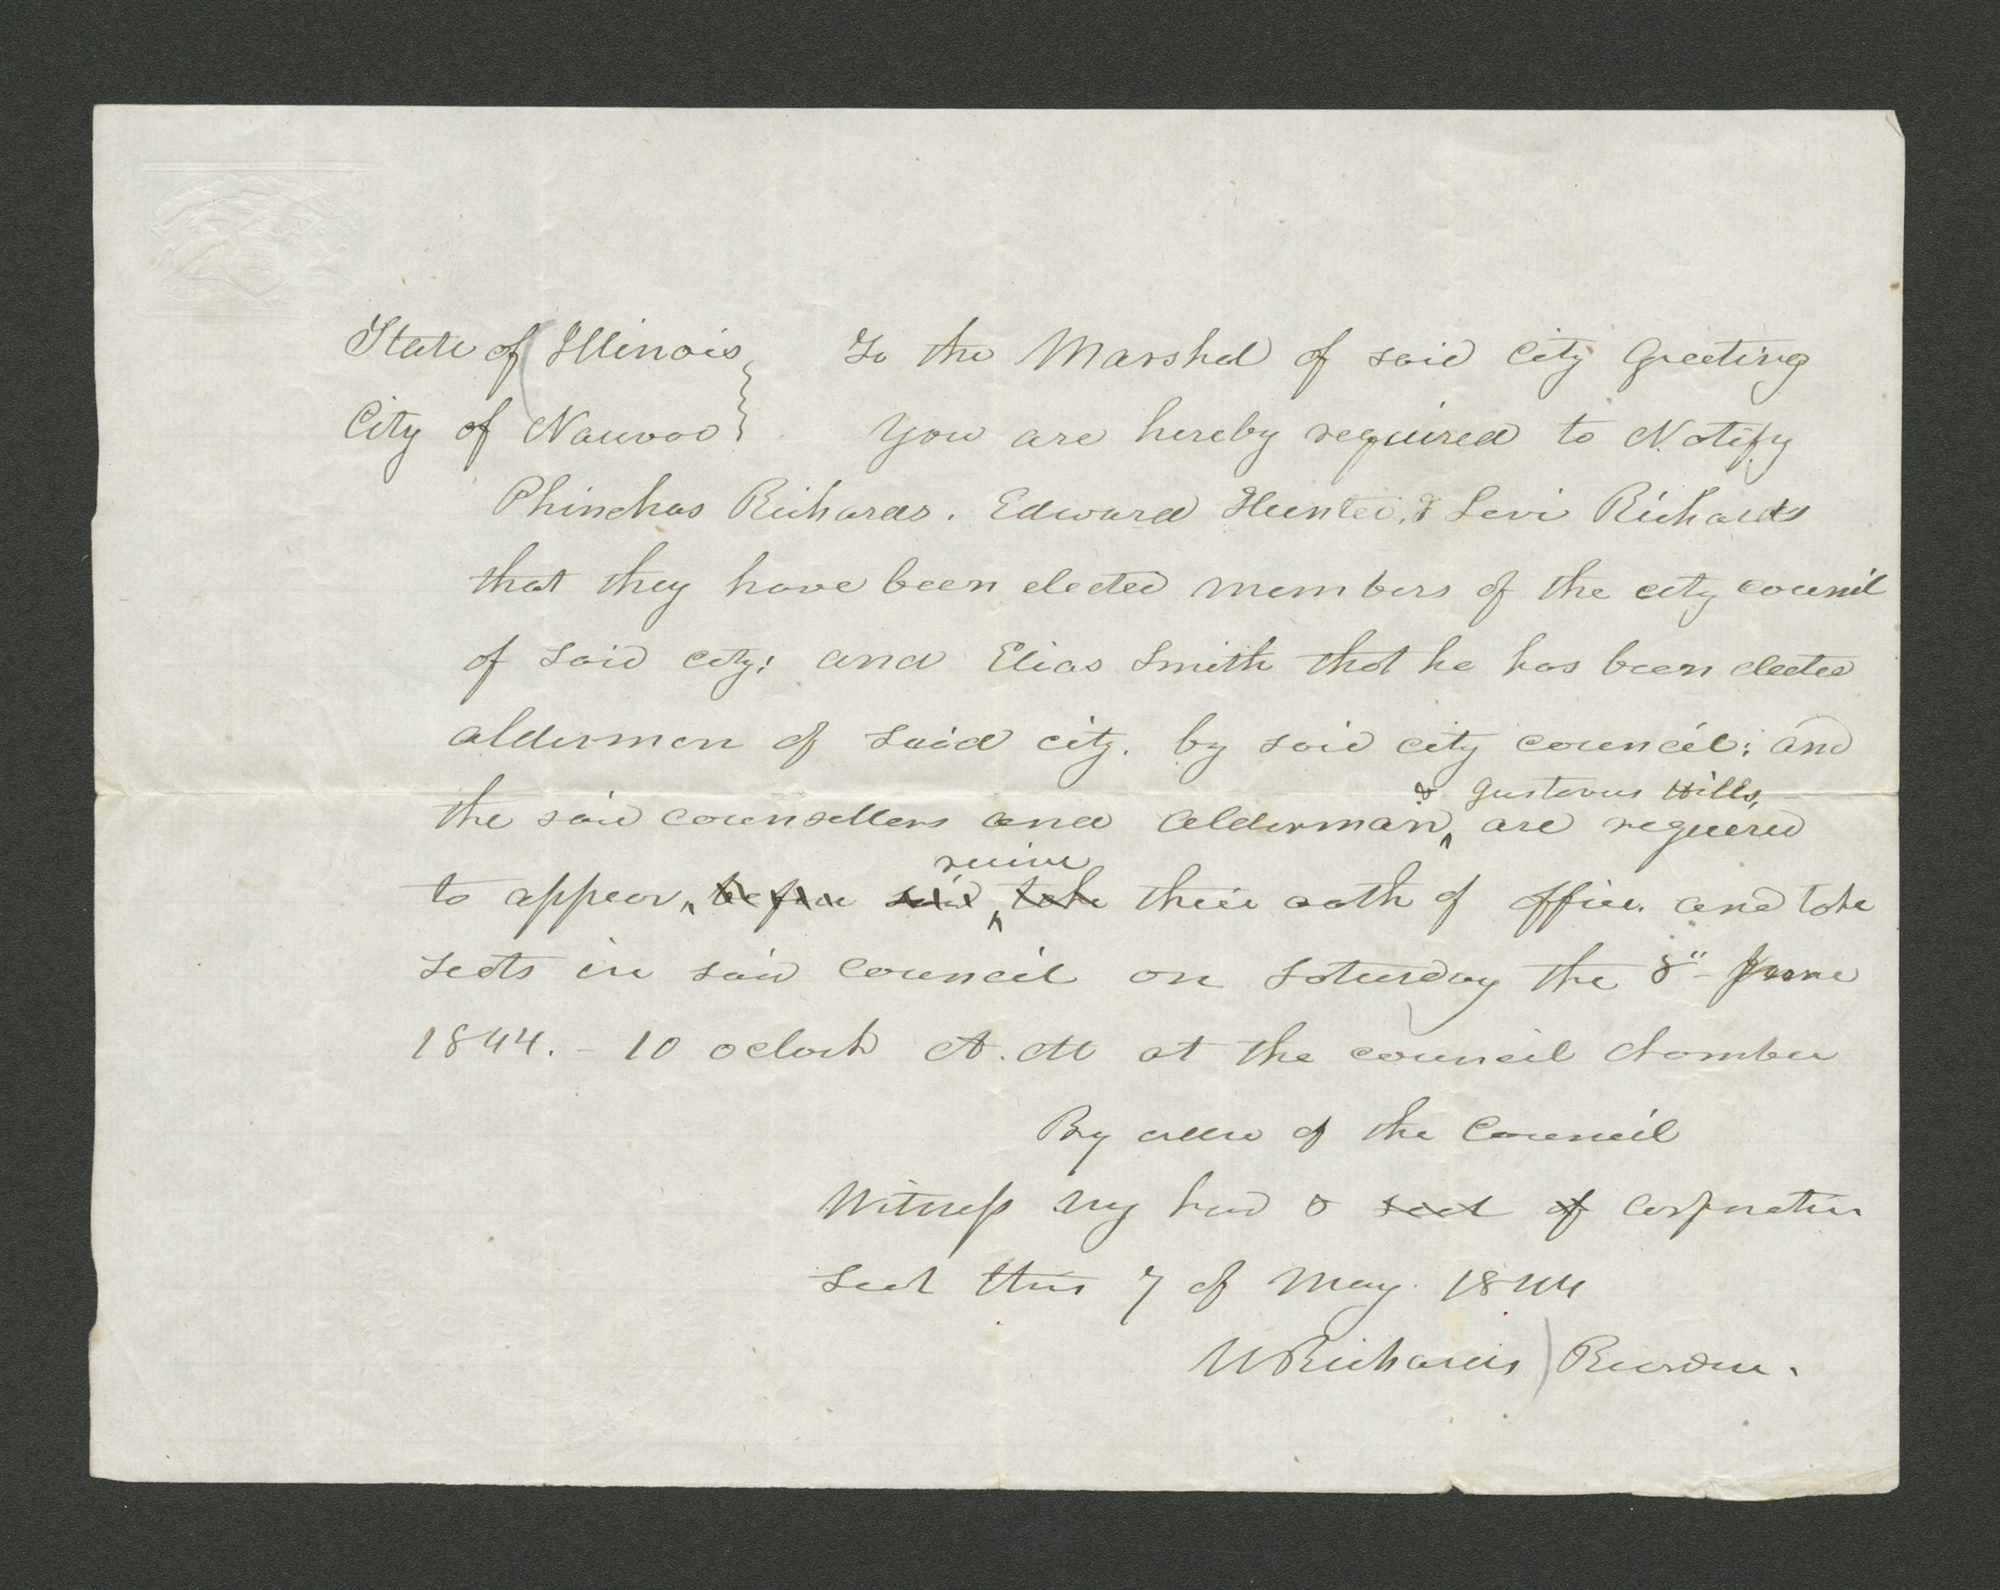 State of Illinois } To the Marshal of said City Greeting
City of Nauvoo } You are hereby required to Notify
Phinehas Richards. Edward Hunter, & Levi Richards
that they have been elected members of the city council
of said city; and Elias Smith that he has been elected
alderman of said city. by said city council; and
& Gustavus Hills,
the said counsellers and alderman, are required
receive
to appear, before said take their oath of office. and take
seats in said council on Saturday the 8" June
1844. - 10 oclock A. M at the council chamber
By order of the Council
Witness my hand & seal of corporation
seal this 7 of May. 1844
W Richards Recorder.